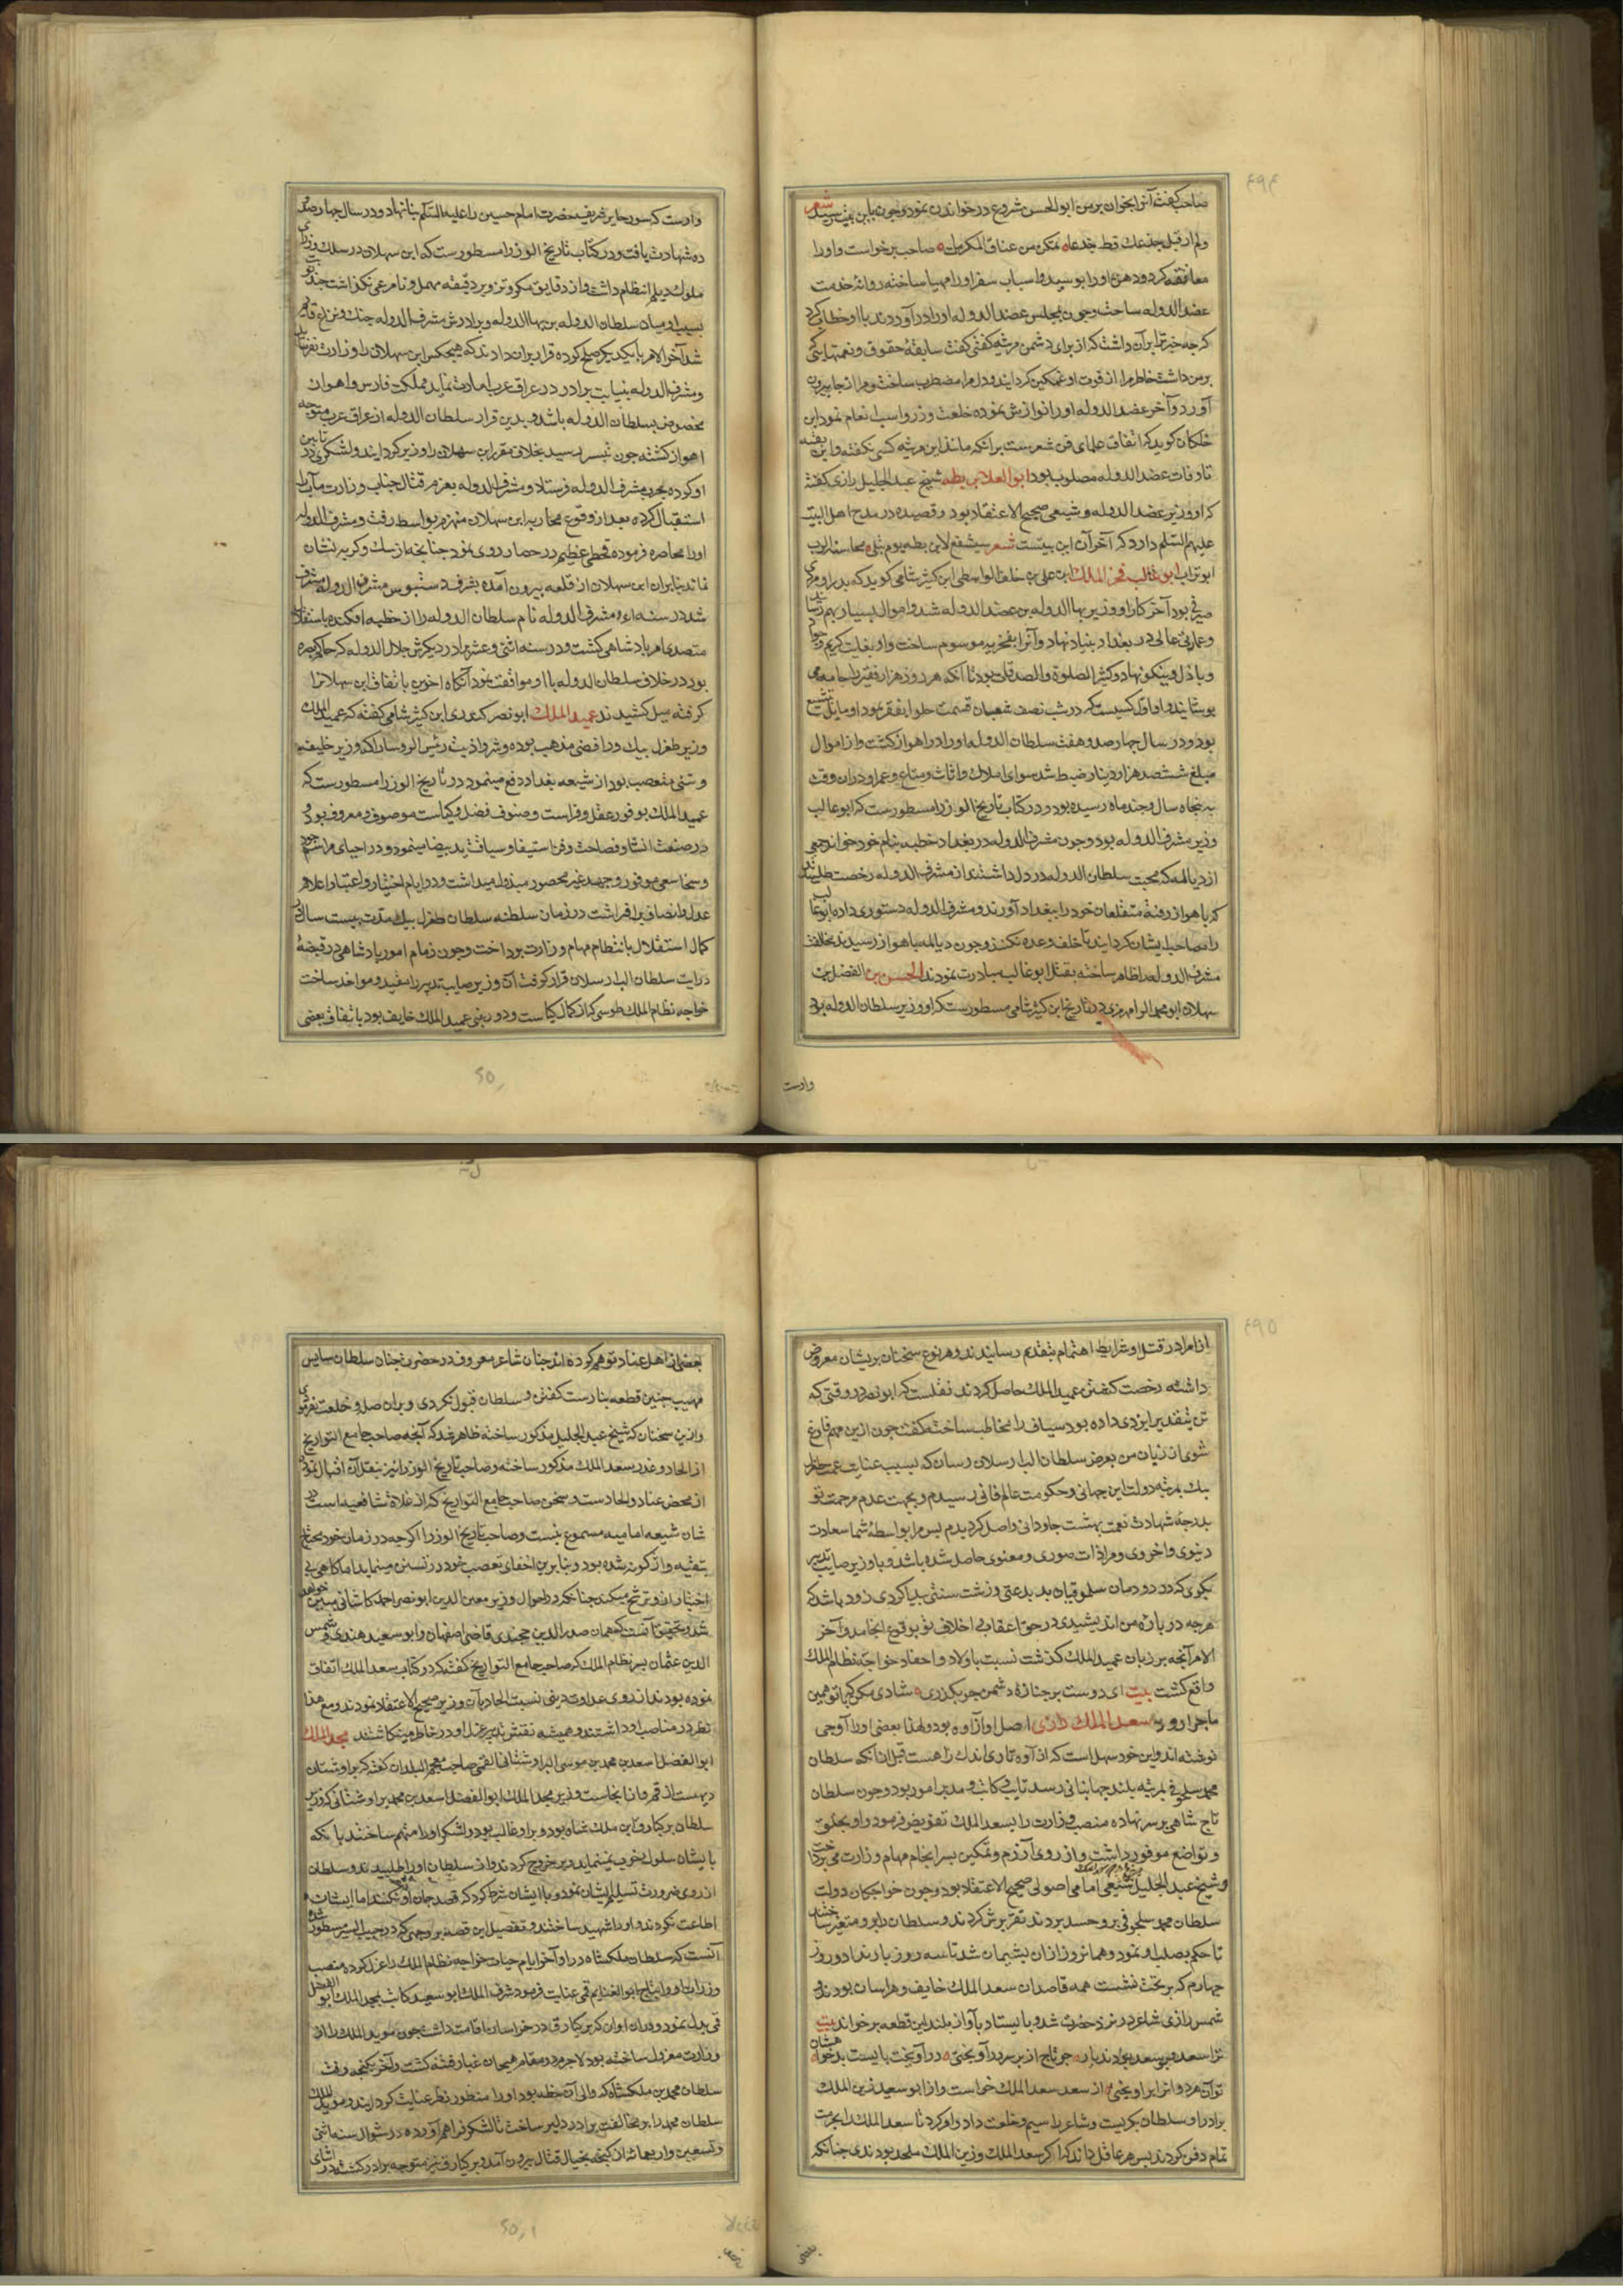 ۴۹۴
صاحب گفت آنرا بخوان بر من ابوالحسن شروع در خواندن نمود و چون باین بیت رسید شعر
ولم ار قبل جذعك قط جذعا تمكن من عناق المكرمات صاحب برخواست و اورا
معانقه کرد و دهن اورا بوسید و اسباب سفر اورا مهیا ساخته روانۀ خدمت
عضد الدوله ساخت و چون بمجلس عضد الدوله اورا در آوردند با او خطاب کرد
که چه چیز ترا بر آن داشت که از برای دشمن مرثیه گفتی گفت سابقۀ حقوق و نعمتها کی
بر من داشت خاطر مرا از فوت او غمگین گردانید و دل مرا مضطرب ساخت و مرا از جا بیرون
آورد و آخر عضد الدوله اورا نوازش نموده خلعت و زر و اسب انعام نمود ابن
خلکان گوید که اتفاق علمای فن شعرست بر انکه مانند این مرثیه کسی نگفته و ابن بقیه
تا وفات عضد الدوله مصلوب بود ابو العلا بن بطه شیخ عبد الجلیل رازی گفته
که او وزیر عضد الدوله و شیعی صحیح الاعتقاد بود و قصیده در مدح اهل البیت
علیهم السلم دارد که آخر آن این بیتست شعر سیشفع لابن بطه یوم تبلی محاسنه التراب
ابو تراب ابو غالب فخر الملك ابن علی بن خلف الواسطی ابن کثیر شامی گوید که پدر او مردی
صیرفی بود آخر کار او وزیر بها الدوله بن عضد الدوله شد و اموال بسیار بهم رسانید
و عمارتی عالی در بغداد بنیاد نهاد و آنرا بفخریه موسوم ساخت و او بغایت کریم و جواد
و باذل و نیکو نهاد و کثیر الصلوة والصدقات بود تا آنکه هر روز هزار فقیر را جامه می
پوشانید و او اول کسیست که در شب نصف شعبان قسمت حلوا بفقرا نمود و مایل بتشیع
بود و در سال چهار صد و هفت سلطان الدوله اورا در اهواز کشت و از اموال
مبلغ ششصد هزار دینار ضبط شد سوای املاك و اثاث و متاع و عمر او در آن وقت
به پنجاه سال و چند ماه رسیده بود و در کتاب تاریخ الوزرا مسطورست که ابو غالب
وزیر مشرف الدوله بود و چون مشرف الدوله در بغداد خطبه بنام خود خواند جمعی
از دیالمه که محبت سلطان الدوله در دل داشتند از مشرف الدوله رخصت طلبیدند
که باهواز رفته متعلقان خود را ببغداد آورند و مشرف الدوله دستوری داده ابو غالب
را مصاحب ایشان گردانید تا خلف وعده نکنند و چون دیالمه باهواز رسیدند مخالفت
مشرف الدوله اظهار ساخته بقتل ابو غالب مبادرت نمودند الحسن بن الفضل بن
سهلان ابو محمد الرامهرمزی در تاریخ ابن کثیر شامی مسطورست که او وزیر سلطان الدوله بود
وارست
وارست که سور حایر شریف حضرت امام حسین را علیه السلم بنا نهاد و در سال چهار صد
ده شهادت یافت و در کتاب تاریخ الوزرا مسطورست که ابن سهلان در سلك وزرای
ملوك دیلم انتظام داشت و از دقایق مکر و تزویر دقیقه مهمل و نامرعی نگذاشت چند نوبت
بسبب او میان سلطان الدوله بن بها الدوله و برادرش مشرف الدوله جنك و نزاع قایم
شد آخر الامر با یکدیگر صلح کرده قرار بران دادند که هیچکس ابن سهلان را وزارت نفرماید
و مشرف الدوله بنیابت برادر در عراق عرب امارت نماید و مملکت فارس و اهواز
مخصوص بسلطان الدوله باشد و بدین قرار سلطان الدوله از عراق عرب متوجه
اهواز گشته چون بتستر رسید بخلاف مقرر ابن سهلان را وزیر گردانید و لشکری
او کرده بحرب مشرف الدوله فرستاد و مشرف الدوله بعزم قتال جناب وزارت مآب را
استقبال کرده بعد از وقوع محاربه ابن سهلان منهزم بواسط رفت و مشرف الدوله
اورا محاصره فرموده قحطی عظیم در حصار روی نمود چنانچه از سك و گربه نشان
نماند بنابران ابن سهلان از قلعه بیرون آمده بشرف دستبوس مشرف الدوله مشرف
شد در سنه مشرف الدوله نام سلطان الدوله را از خطبه افکنده باستقلال
متصدی امر پادشاهی گشت و در سنه اثنی و عشر برادر دیگرش جلال الدوله که حاکم بصره
بود در خلاف سلطان الدوله با او موافقت نمود آنگاه اخوین باتفاق ابن سهلانرا
گرفته میل کشیدند عمید الملك ابو نصر کندری ابن کثیر شامی گفته که عمید الملك
وزیر طغرل بیك و رافضی مذهب بوده و شر و اذیت رئیس الروسا را که وزیر خلیفه
و سنی متعصب بود از شیعه بغداد دفع مینمود در تاریخ الوزرا مسطورست که
عمید الملك بوفور عقل و فراست و صنوف فضل و کیاست موصوف و معروف بود و
در صنعت انشا و فصاحت و فن استیفا و سیاقت ید بیضا مینمود و در احیای مراسم جود
و سخا سعی موفور و جهد غیر محصور مبذول میداشت و در ایام اختیار و اعتبار اعلام
عدل و انصاف بر افراشت در زمان سلطنه سلطان طغرل بیك مدت بیست سال از
کمال استقلال بانتظام مهام وزارت پرداخت و چون زمام امور پادشاهی در قبضۀ
درایت سلطان الب ارسلان قرار گرفت آن وزیر صایب تدبیر را مقید و مواخذ ساخت
خواجه نظام الملك طوسی که از کمال کیاست و دوربینی عمید الملك خایف بود باتفاق بعضی
۲۵۰
۴۹۵
از امرا در قتل او شرایط اهتمام بتقدیم رسانیدند و هر نوع سخنان پریشان معروض
داشته رخصت کشتن عمید الملك حاصل کردند نقلست که ابو نصر در وقتی که
تن بتقدیر ایزدی داده بود سیاف را مخاطب ساخته گفت چون ازین مهم فارغ
شوی از زبان من بعرض سلطان الب ارسلان رسان که بسبب عنایت عمت طغرل
بیك بمرتبه دولت این جهانی و حکومت عالم فانی رسیدم و بجهت عدم مرحمت تو
بدرجۀ شهادت نعمت بهشت جاودانی واصل گردیدم پس مرا بواسطۀ شما سعادت
دنیوی و اخروی و مرادات صوری و معنوی حاصل شده باشد و با وزیر صایب تدبیر
بگوی که در دودمان سلجوقیان بد بدعتی و زشت سنتی پیدا کردی زود باشد که
هرچه در باره من اندیشیدی در حق اعقاب و اخلاف تو بوقوع انجامد و آخر
الامر آنچه بر زبان عمید الملك گذشت نسبت باولاد و احفاد خواجه نظام الملك
واقع گشت بیت ای دوست بر جنازۀ دشمن چو بگذری شادی مکن که با تو همین
ماجرا رود سعد الملك رازی اصل او از آوه بود و لهذا بعضی اورا آوجی
نوشته اند و این خود سهل است که از آوه تا ری اندك راهست قبل ازانکه سلطان
محمد سلجوقی بمرتبه بلند جهانبانی رسد نایب و کاتب و مدبر امور بود و چون سلطان
تاج شاهی بر سر نهاده منصب وزارت را بسعد الملك تفویض فرمود و او بخلق
و تواضع موفور داشت و از روی آزرم و تمکین بسرانجام مهام وزارت می پرداخت
و شیخ عبد الجلیل شیعی امامی اصولی صحیح الاعتقاد بود و چون خواجگان دولت
سلطان محمد سلجوقی برو حسد بردند تقریرش کردند و سلطان را برو متغیر ساختند
تا حکم بصلب او نمود و همانروز ازان پشیمان شد تا سه روز بار نداد و روز
چهارم که بر تخت نشست همه قاصدان سعد الملك خایف و هراسان بودند و
شمس رازی شاعر در نزد حضرت شد و بایستاد بآواز بلند این قطعه بر خواند بیت
ترا سعد و بو سعد بودند یار چو تاج از بر سر در آویختی در آویخت بایست بدخواه
تو آن هر دو انرا بر آویختی از سعد سعد الملك خواست و از ابو سعید زین الملك
برادر او سلطان بگریست و شاعر را سیم و خلعت داد و امر کرد تا سعد الملك را بحرمت
تمام دفن کردند پس هر عاقل داند که اگر سعد الملك و زین الملك ملحد بودندی چنانکه
بعضی
بعضی از اهل عناد توهم کرده اند چنان شاعر معروف در حضرت چنان سلطان سایس
مهیب چنین قطعه بنارست گفتن و سلطان قبول نکردی و بران صله و خلعت نفرمودی
و ازین سخنان که شیخ عبد الجلیل مذکور ساخته ظاهر شد که آنچه صاحب جامع التواریخ
از الحاد و غدر سعد الملك مذکور ساخته و صاحب تاریخ الوزرا نیز بنقل آن اقبال نموده
از محض عناد و الحادست و سخن صاحب جامع التواریخ که از غلاة شافعیه است در
شان شیعه امامیه مسموع نیست و صاحب تاریخ الوزرا اگرچه در زمان خود محتاج
بتقیه و از گونه شده بود و بنابرین اخفای تعصب خود در تسنن مینماید اما گاهی بی
اختیار ازو ترشح میکند چنانکه در احوال وزیر معین الدین ابو نصر احمد کاشانی مبین خواهد
شد و تحقیق آنست که همان صدر الدین خجندی قاضی اصفهان و ابو سعید هندی و شمس
الدین عثمان پسر نظام الملك که صاحب جامع التواریخ گفته که در کتاب سعد الملك اتفاق
نموده بودند از روی عداوت دینی نسبت الحاد بآن وزیر صحیح الاعتقاد نمودند و مع هذا
نظر در مناصب او داشتند و همیشه نقش تدبیر عزل او در خاطر مینگاشتند مجد الملك
ابو الفضل اسعد بن محمد بن موسی البراوستانی القمی صاحب معجم البلدان گفته که براوستان
دیهست از قم و از انجاست وزیر مجد الملك ابو الفضل اسعد بن محمد براوستانی که وزیر
سلطان برکیارق ابن ملك شاه بود و برو غالب بود و لشکر اورا متهم ساختند بانکه
با ایشان سلوك خوب نمینماید و برو خروج کردند و از سلطان اورا طلبیدند و سلطان
از روی ضرورت تسلیم ایشان نمود و با ایشان شرط کرد که قصد جان او نکنند اما ایشان
اطاعت نکردند و اورا شهید ساختند و تفصیل این قصه بروجهی که در حبیب السیر مسطور شده
آنست که سلطان ملکشاه در اواخر ایام حیات خواجه نظام الملك را عزل کرده منصب
وزارت او را بتاج ابو الغنایم قمی عنایت فرمود شرف الملك ابو سعید کاتب بمجد الملك ابو الفضل
قمی بدل نمود و دران اوان که برکیارق در خراسان اقامت داشت چون موید الملك را از
وزارت معزول ساخته بود لاجرم در مقام هیجان غبار فتنه گشت و آخر بگنجه رفت
سلطان محمد بن ملکشاه که والی آن خطه بود اورا منظور نظر عنایت گردانید و موید الملك
سلطان محمد را بر مخالفت برادر دلیر ساخت تا لشکر فراهم آورده در شوال سنه اثنی
و تسعین و اربعمائه از گنجه بخیال قتال بیرون آمد و برکیارق نیز متوجه برادر گشته در اثنای
۲۵۰۱